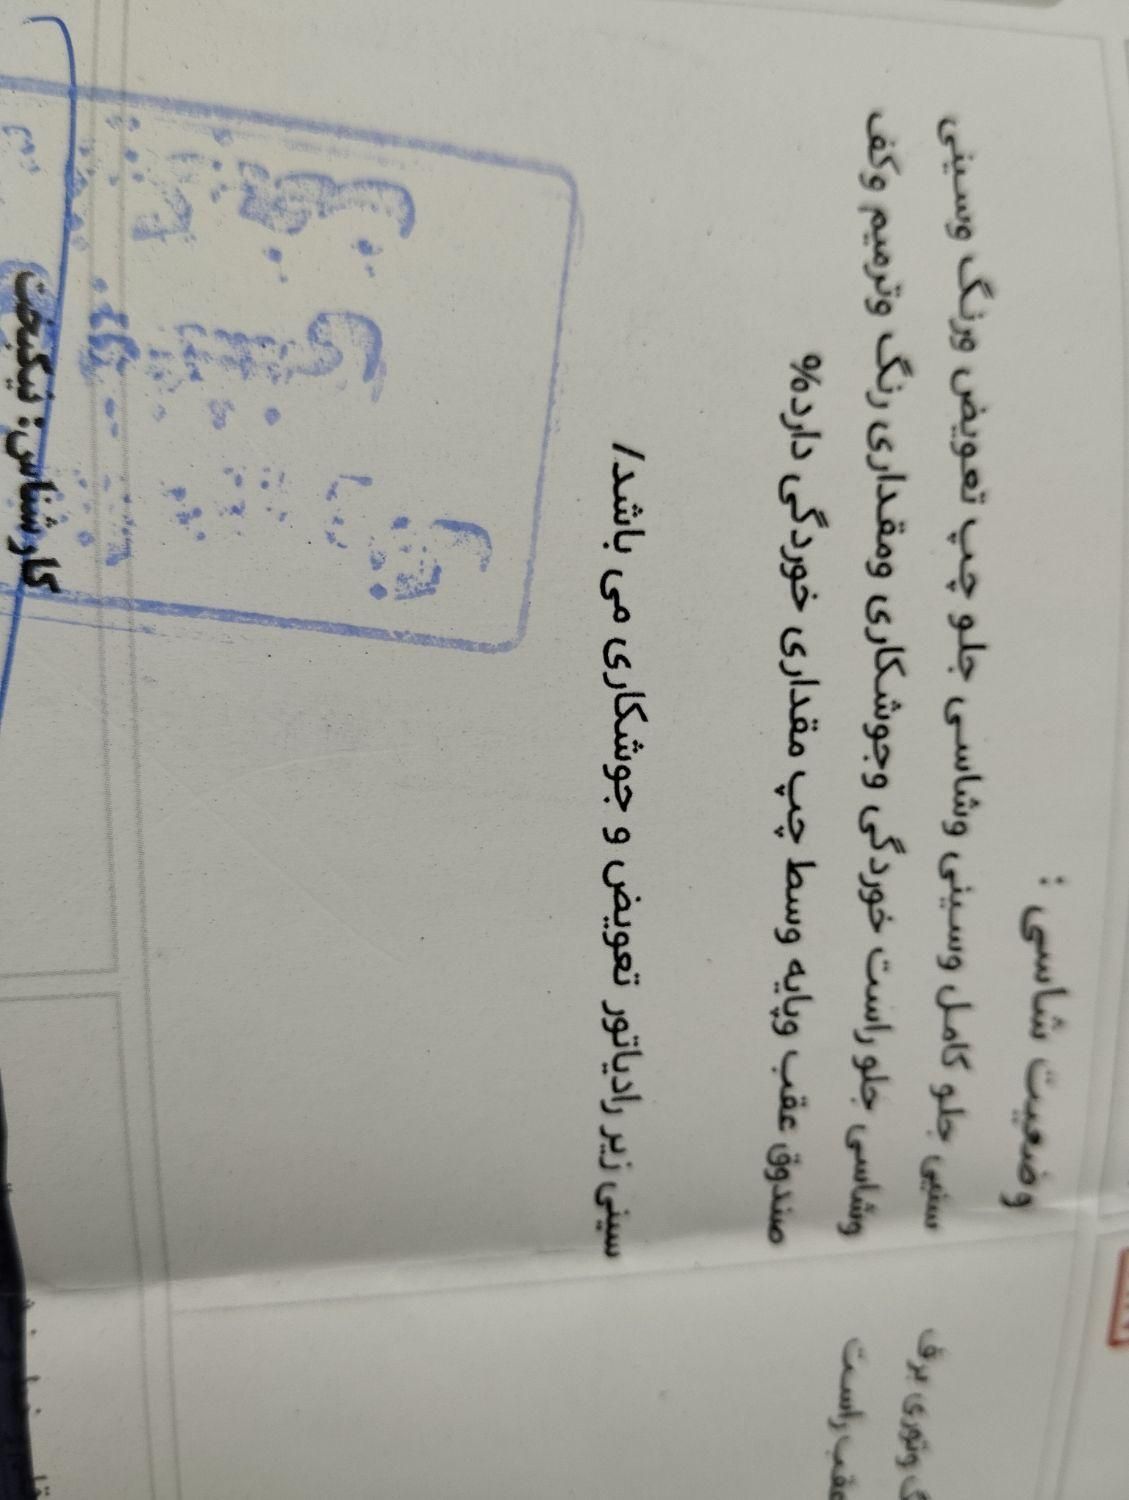 وضعیت شاسی :
سینی جلو کامل وسینی وشاسی جلو چپ تعویض ورنگ وسینی
وشاسی جلو راست خوردگی وجوشکاری ومقداری رنگ وترمیم وکف
صندوق عقب وپایه وسط چپ مقداری خوردگی دارد%
سینی زیر رادیاتور تعویض و جوشکاری می باشد/
کارشناس: نیکبخت
وتوری برف
عقب راست